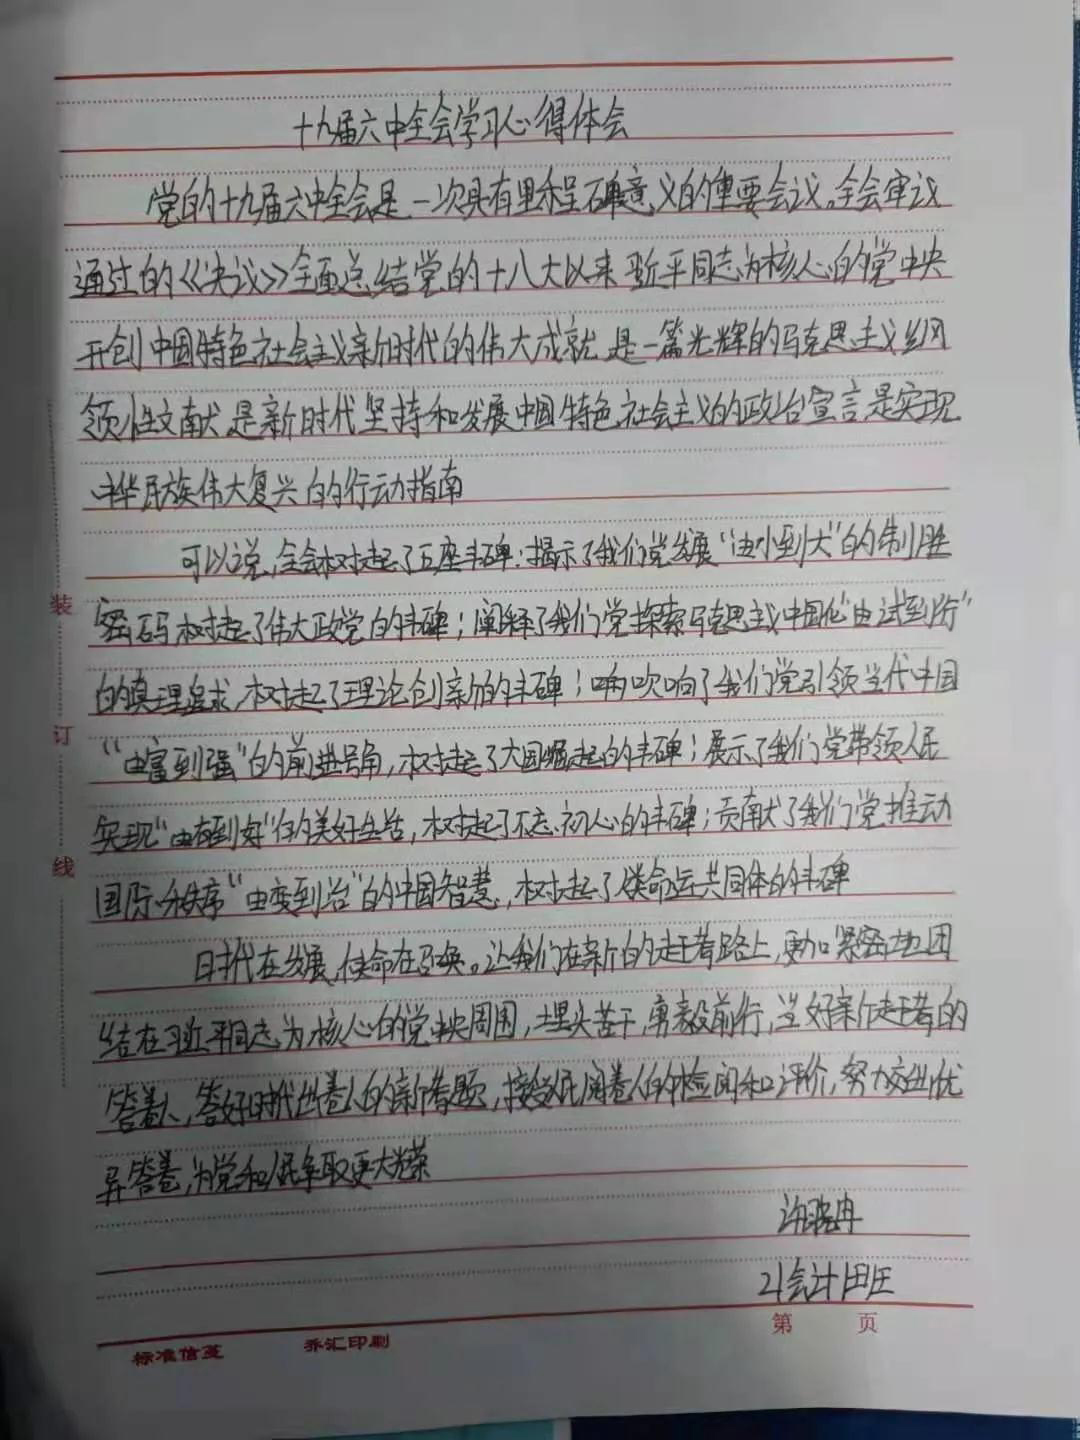 十九届六中全会学习心得体会
党的十九届六中全会是一次具有里程碑意义的重要会议。全会审议
通过的《决议》全面总结党的十八大以来 近平同志为核心的党中央
开创中国特色社会主义新时代的伟大成就 是一篇光辉的马克思主义纲
领性文献 是新时代坚持和发展中国特色社会主义的政治宣言,是实现
中华民族伟大复兴的行动指南
可以说,全会树起了五座丰碑:揭示了我们党发展“由小到大”的制胜
密码 树起了伟大政党的丰碑;阐释了我们党探索马克思主义中国化“由试到所”
的真理追求,树起了理论创新的丰碑;吹响了我们党引领当代中国
“由富到强”的前进号角,树起了大国崛起的丰碑;展示了我们党带领人民
实现“由有到好”的美好生活,树起了不忘初心的丰碑;贡献了我们党推动
国际秩序“由变到治”的中国智慧,树起了类命运共同体的丰碑
时代在发展,使命在召唤。让我们在新的赶考路上,更加紧密地团
结在习近平同志为核心的党中央周围,埋头苦干,勇毅前行,当好新赶考的
答卷人,答好时代出卷人的新考题,接受人民阅卷人的检阅和评价,努力交出优
异答卷,为党和人民争取更大光荣
21会计
装
订
线
第 页
标准信笺 乔汇印刷